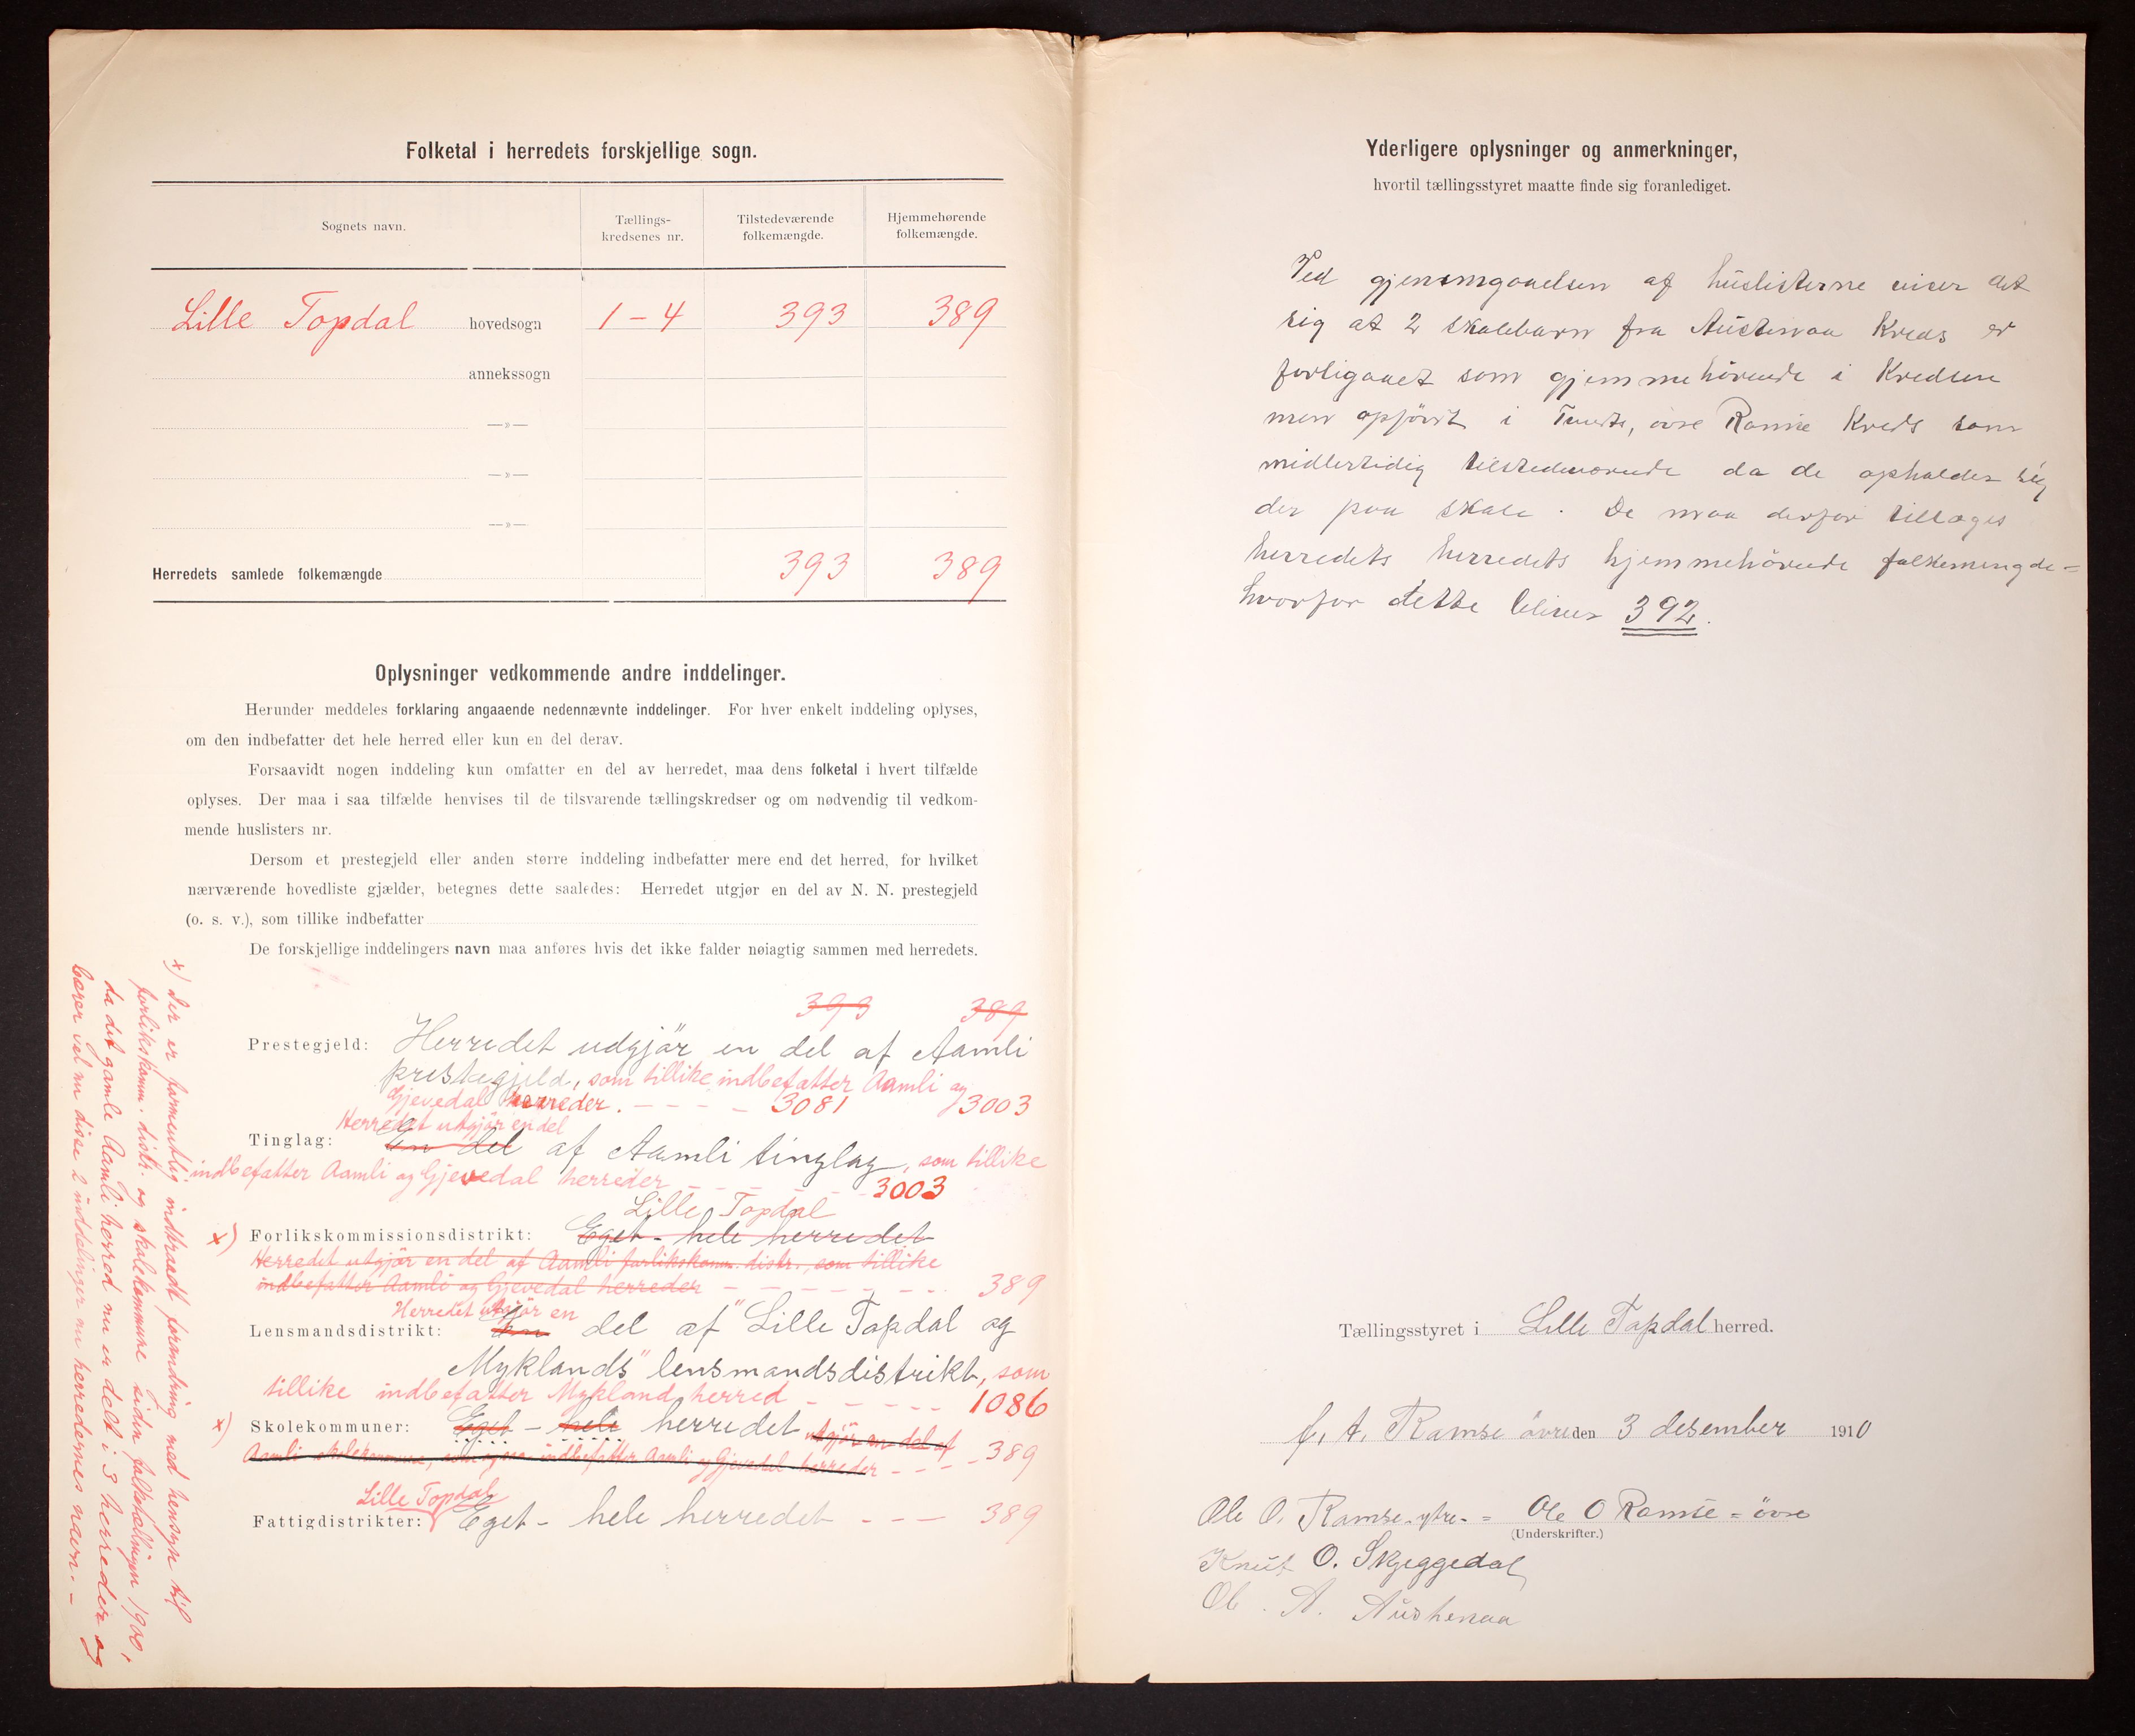 Folketal i herredets forskjellige sogn.
Sognets navn.
Tællings-
kredsenes nr.
Tilstedeværende
folkemængde.
Hjemmehørende
folkemængde.
Lille Topdal hovedsogn 1 - 4 393 389
annekssogn
—»—
—»—
—»—
Herredets samlede folkemængde 393 389
Oplysninger vedkommende andre inddelinger.
Herunder meddeles forklaring angaaende nedennævnte inddelinger. For hver enkelt inddeling oplyses,
om den indbefatter det hele herred eller kun en del derav.
Forsaavidt nogen inddeling kun omfatter en del av herredet, maa dens folketal i hvert tilfælde
oplyses. Der maa i saa tilfælde henvises til de tilsvarende tællingskredser og om nødvendig til vedkom-
mende huslisters nr.
Dersom et prestegjeld eller anden større inddeling indbefatter mere end det herred, for hvilket
nærværende hovedliste gjælder, betegnes dette saaledes: Herredet utgjør en del av N. N. prestegjeld
(o. s. v.), som tillike indbefatter
De forskjellige inddelingers navn maa anføres hvis det ikke falder nøiagtig sammen med herredets.
393 389
Prestegjeld: Herredet udgjör en del af Aamli
prestegjeld, som tillike indbefatter Aamli og
Gjevedal herreder. - - - - 3081 3003
Herredet utgjör en del
Tinglag: En del af Aamli tinglag, som tillike
indbefatter Aamli og Gjevedal herreder - - - - 3003
Lille Topdal
x) Forlikskommissionsdistrikt: Eget - hele herredet
Herredet utgjör en del af Aamli forlikskomm. distr., som tillike
indbefatter Aamli og Gjevedal herreder - - - - - - 389
Herredet utgjör en
Lensmandsdistrikt: En del af "Lille Topdal og
Myklands" lensmandsdistrikt, som
tillike indbefatter Mykland herred - - - - - 1086
x) Skolekommuner: Eget - hele herredet utgjör en del af
Aamli skolekommune, som ogsaa indbefatter Aamli og Gjevedal herreder - - - - 389
Lille Topdal
Fattigdistrikter: Eget - hele herredet - - - 389
x) Der er formentlig indtraadt forandring med hensyn til
forlikskomm. distr. og skolekommune siden folketællingen 1900,
da det gamle Aamli herred nu er delt i 3 herreder og
bærer vel nu disse 2 inddelinger nu herredernes navn. -
Yderligere oplysninger og anmerkninger,
hvortil tællingsstyret maatte finde sig foranlediget.
Ved gjennemgaaelsen af huslisterne viser det
sig at 2 skolebarn fra Austenaa Kreds er
forligaaet som gjemmehörende i Kredsen
men opfört i øvre Ramse Kreds som
midlertidig tilstedeværende da de opholder sig
der paa skole. De maa derfor tillægges
herredets herredets hjemmehörende folkemengde -
hvorfor dette bliver 392.
Tællingsstyret i Lille Topdal herred.
Ramse övre den 3 desember 1910
Ole O. Ramse - ytre - = Ole O Ramse = övre
(Underskrifter.)
Knut O. Skjeggedal
Ol. A. Austenaa